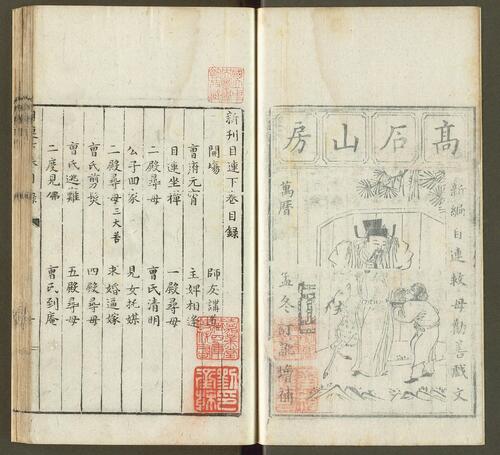 高石山房
新編目連救母勸善戲文
萬曆
孟冬訂訛增補
新刊目連下卷目錄
開塲 師友講道
曹府元宵 主婢相逢
目連坐禪 一殿尋母
二殿尋母 曹氏清明
公子回家 見女托媒
三殿尋母三大苦 求婚逼嫁
曹氏剪髮 四殿尋母
曹氏逃難 五殿尋母
二度見佛 曹氏到庵